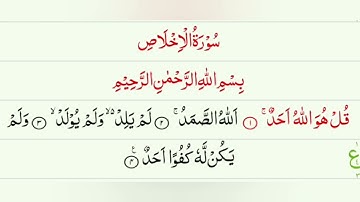 سُوْرَةُ الْاِخْلَاصِ
بِسْمِ اللهِ الرَّحْمٰنِ الرَّحِيْمِ
قُلْ هُوَ اللهُ اَحَدٌ ۚ ۝١ اَللهُ الصَّمَدُ ۚ ۝٢ لَمْ يَلِدْ ۙ۬ وَلَمْ يُوْلَدْ ۙ ۝٣ وَلَمْ
يَكُنْ لَّهٗ كُفُوًا اَحَدٌ ۟ ۝٤
ع